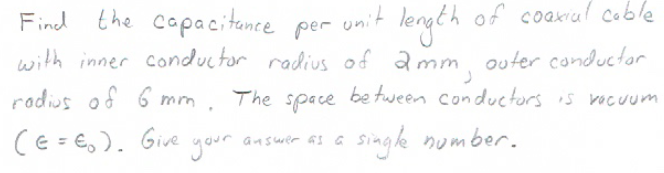 Find the capacitance per unit length of coaxial cable
with inner conductor radius of 2mm, outer conductor
radius of 6 mm. The space between conductors is vacuum
(ϵ = ϵ₀). Give your answer as a single number.